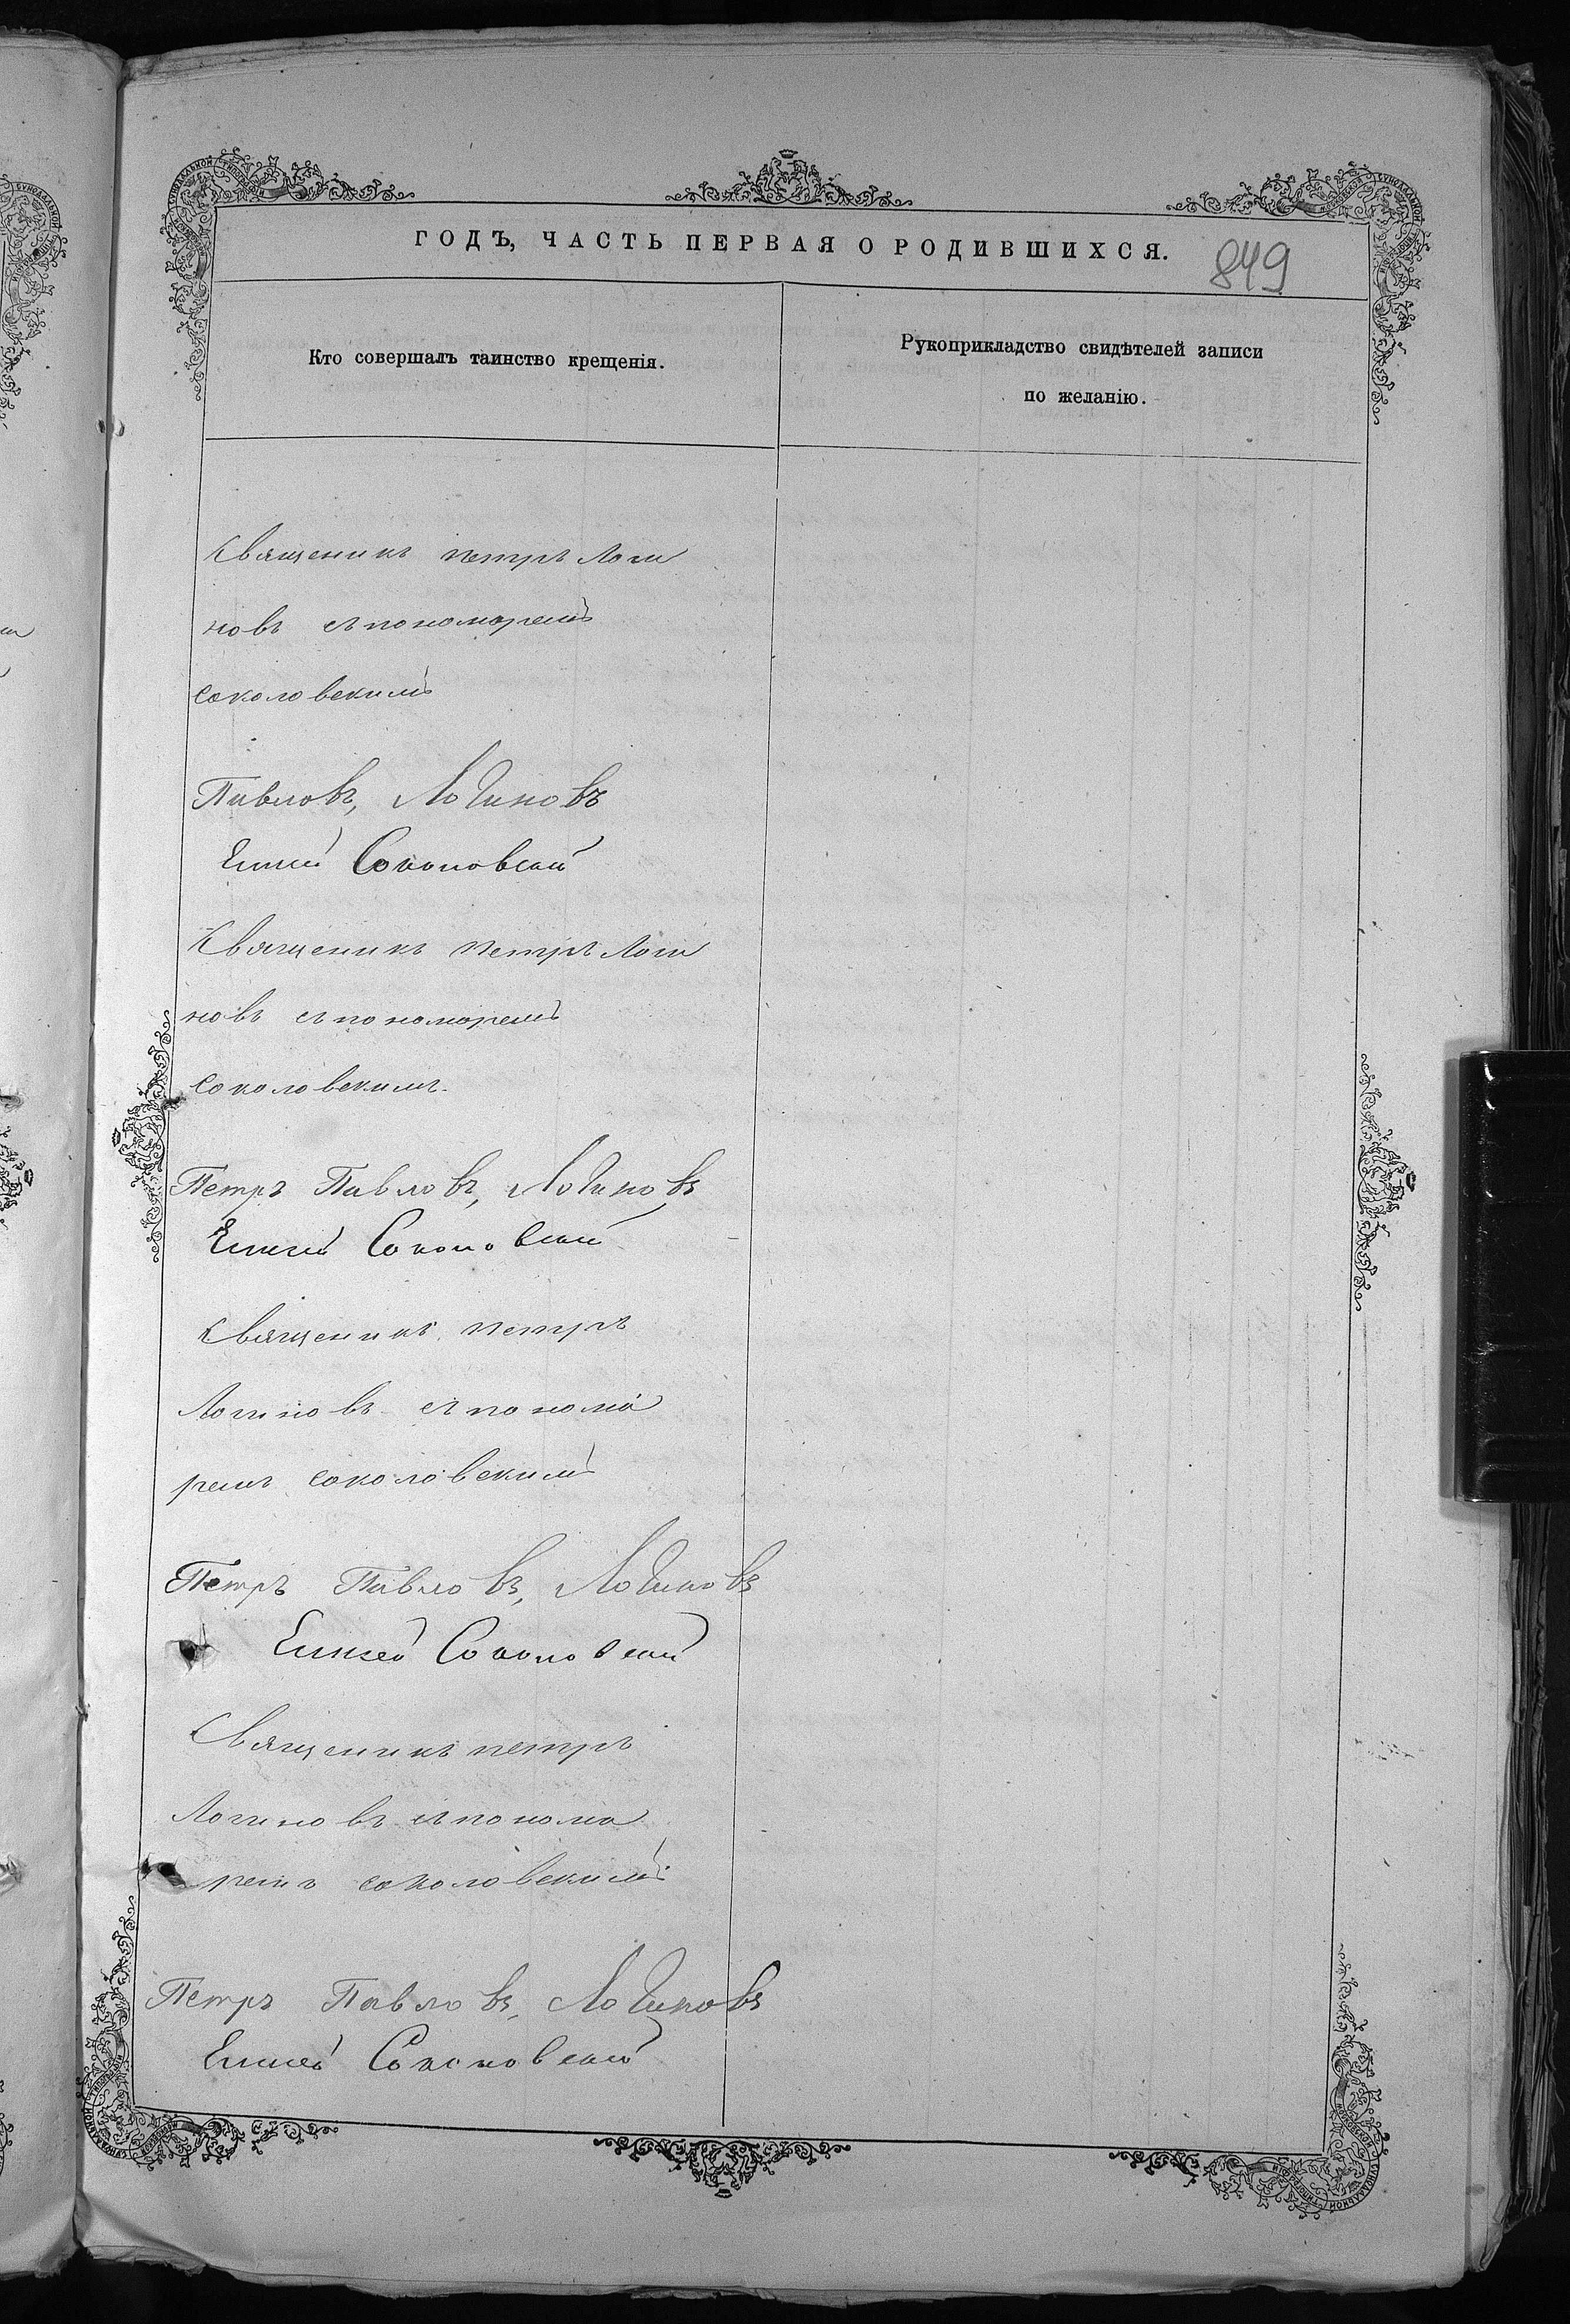 ГОДЪ, ЧАСТЬ ПЕРВАЯ О РОДИВШИХСЯ.
849
Кто совершалъ таинство крещенія.
Рукоприкладство свидѣтелей записи
по желанію.
Священикъ петръ Логи
новъ съпономаремъ
соколовскимъ
Павловъ, Логиновъ
Елисей Соколовскій
Священикъ петръ Логи
новъ съпономаремъ
соколовскимъ.
Петръ Павловъ, Логиновъ
Елисей Соколовскій
Священикъ петръ
Логиновъ съпонома
ремъ соколовскимъ
Петръ Павловъ, Логиновъ
Елисей Соколовскій
Священикъ петръ
Логиновъ съпонома
ремъ соколовскимъ
Петръ Павловъ, Логиновъ
Елисей Соколовскій